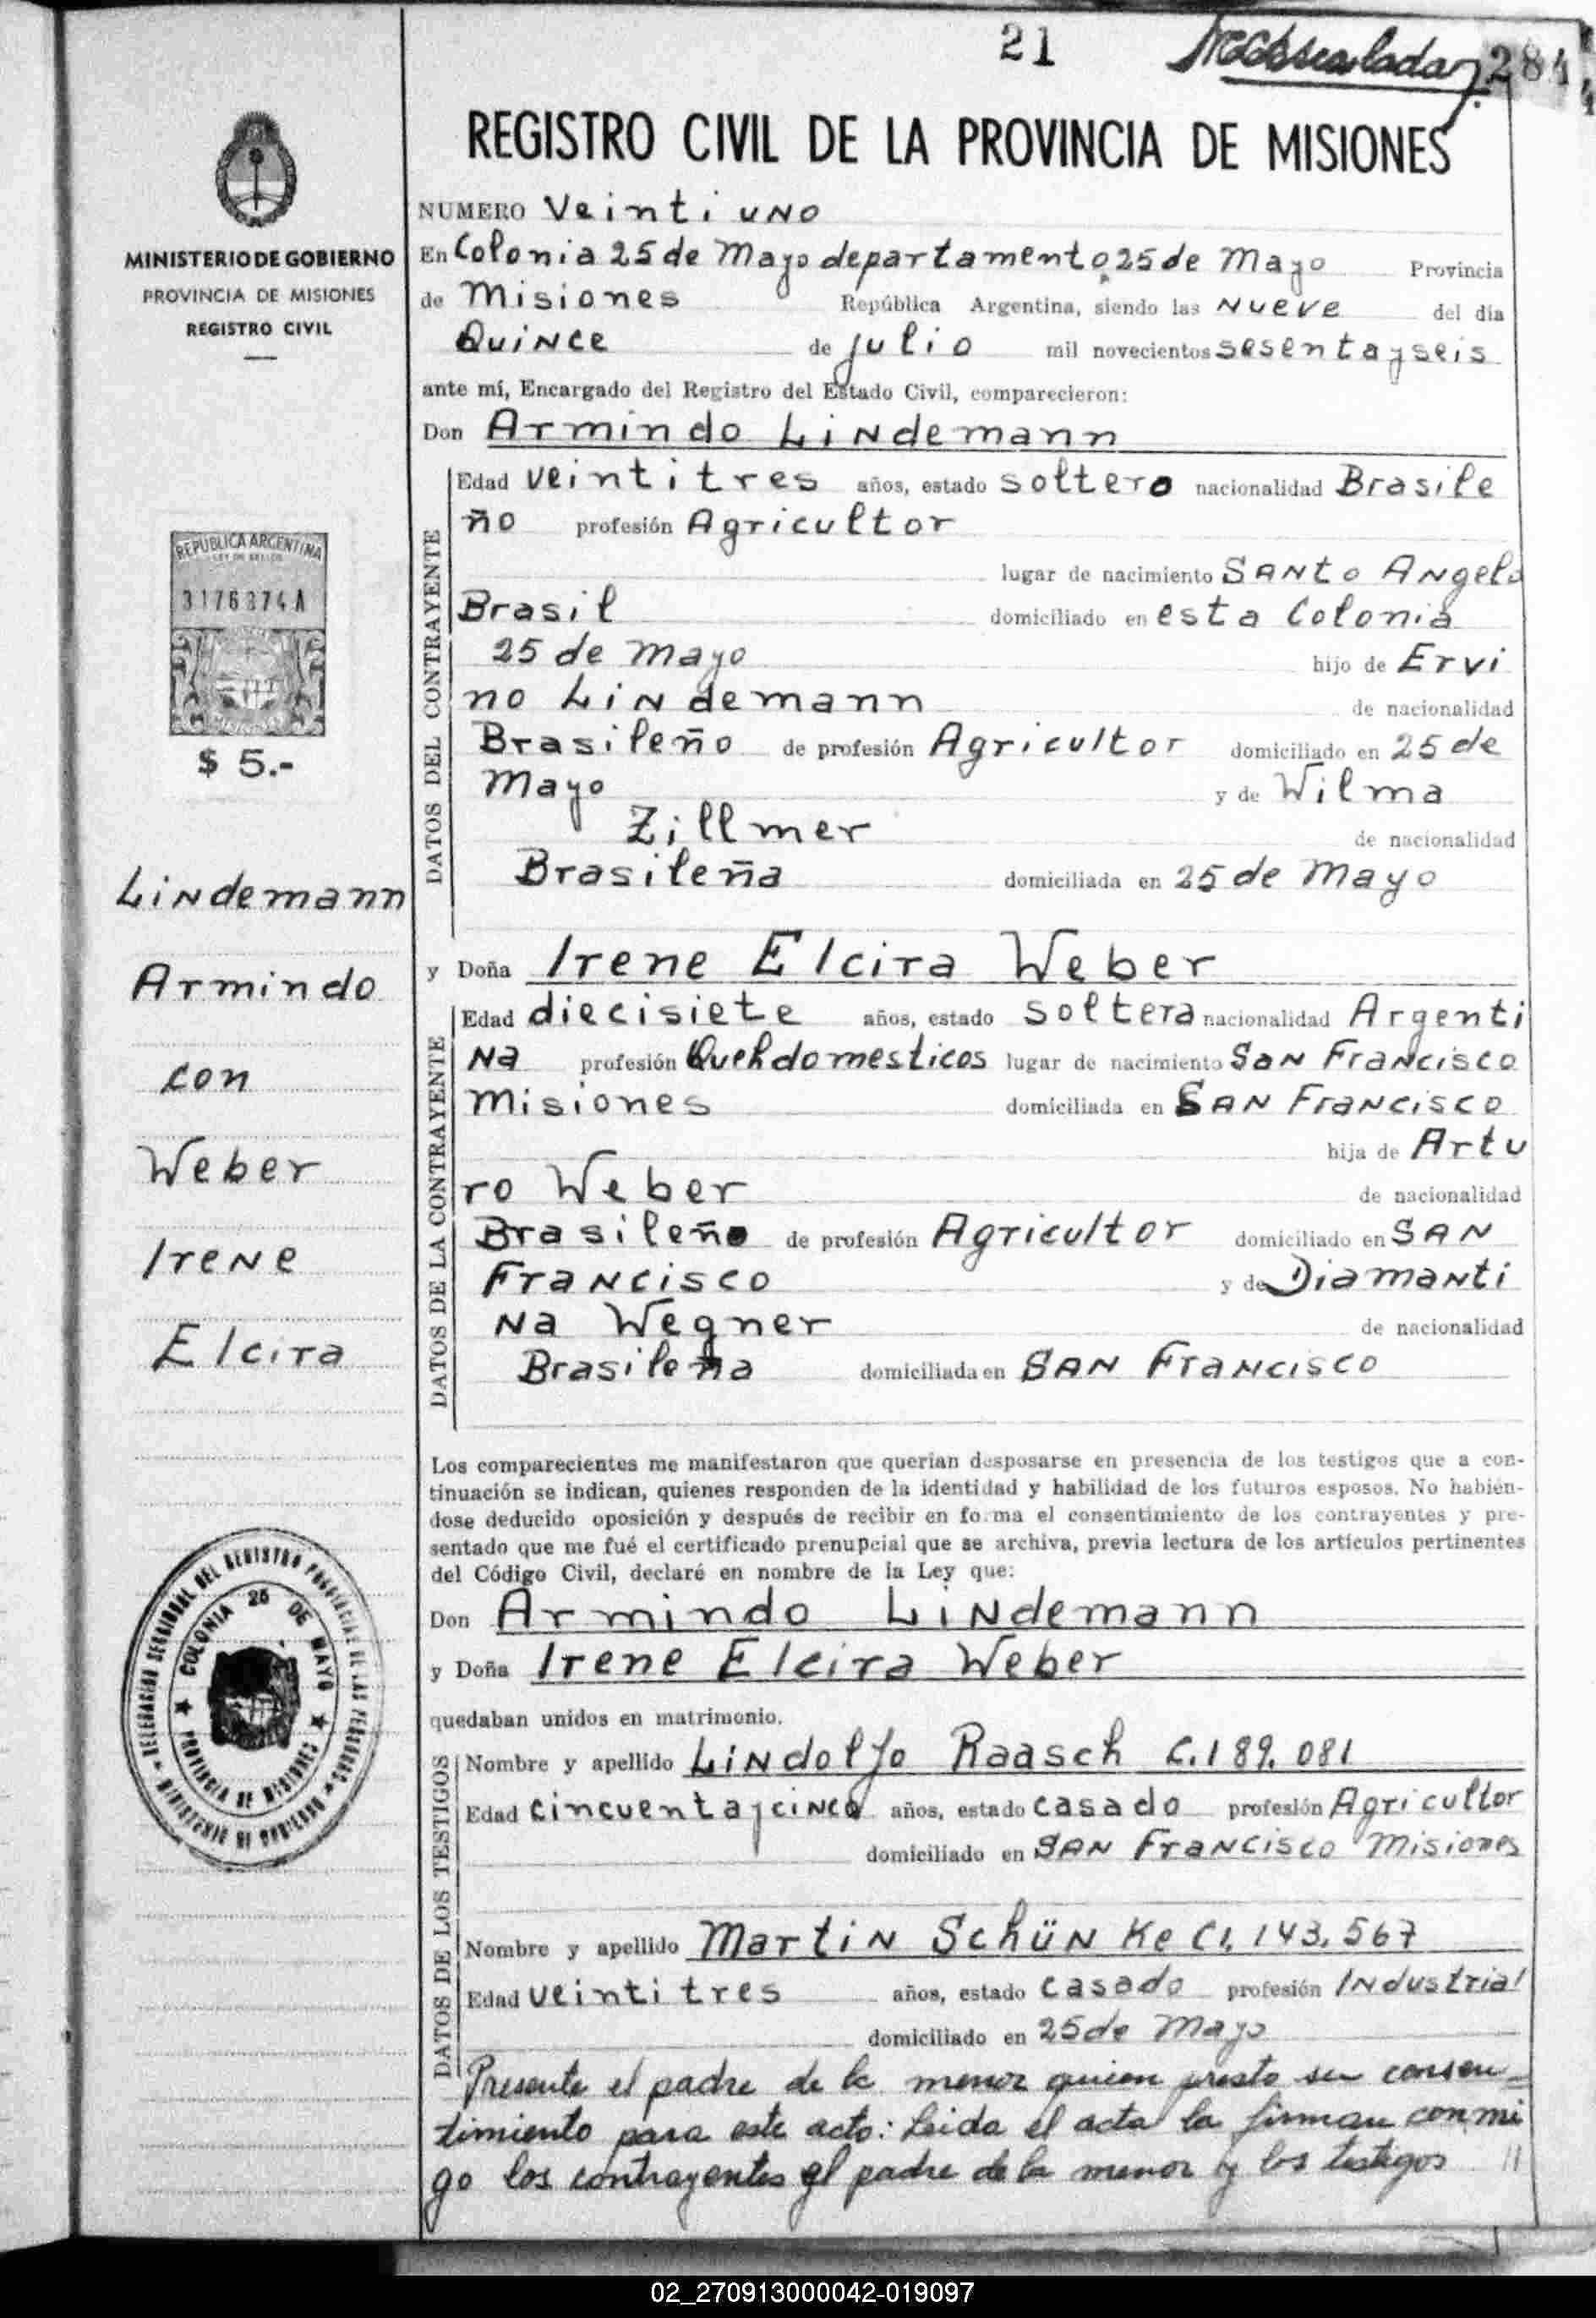 21
284
REGISTRO CIVIL DE LA PROVINCIA DE MISIONES
MINISTERIO DE GOBIERNO
PROVINCIA DE MISIONES
REGISTRO CIVIL
REPUBLICA ARGENTINA
$ 5.-
Lindemann
Armindo
con
Weber
Irene
Elcira
COLONIA 25 DE MAYO
PROVINCIA DE MISIONES
NUMERO Veinti uno
En Colonia 25 de Mayo departamento 25 de Mayo Provincia
de Misiones República Argentina, siendo las Nueve del día
Quince de julio mil novecientos sesenta y seis
ante mí, Encargado del Registro del Estado Civil, comparecieron:
Don Armindo Lindemann
DATOS DEL CONTRAYENTE
Edad veinti tres años, estado soltero nacionalidad Brasile
ño profesión Agricultor
lugar de nacimiento Santo Angelo
Brasil domiciliado en esta Colonia
25 de Mayo hijo de Ervi
no Lindemann de nacionalidad
Brasileño de profesión Agricultor domiciliado en 25 de
Mayo y de Wilma
Zillmer de nacionalidad
Brasileña domiciliada en 25 de Mayo
y Doña Irene Elcira Weber
DATOS DE LA CONTRAYENTE
Edad diecisiete años, estado soltera nacionalidad Argenti
na profesión Quehdomesticos lugar de nacimiento San Francisco
Misiones domiciliada en San Francisco
hija de Artu
ro Weber de nacionalidad
Brasileño de profesión Agricultor domiciliado en San
Francisco y de Diamanti
na Wegner de nacionalidad
Brasileña domiciliada en San Francisco
Los comparecientes me manifestaron que querían desposarse en presencia de los testigos que a con-
tinuación se indican, quienes responden de la identidad y habilidad de los futuros esposos. No habién-
dose deducido oposición y después de recibir en forma el consentimiento de los contrayentes y pre-
sentado que me fué el certificado prenupcial que se archiva, previa lectura de los artículos pertinentes
del Código Civil, declaré en nombre de la Ley que:
Don Armindo Lindemann
y Doña Irene Elcira Weber
quedaban unidos en matrimonio.
DATOS DE LOS TESTIGOS
Nombre y apellido Lindolfo Raasch C.189.081
Edad cincuenta y cinco años, estado casado profesión Agricultor
domiciliado en San Francisco Misiones
Nombre y apellido Martin Schünke CI. 143.567
Edad veinti tres años, estado casado profesión Industrial
domiciliado en 25 de Mayo
Presente el padre de la menor quien presto su consen=
timiento para este acto: Leida el acta la firman conmi
go los contrayentes el padre de la menor y los testigos //
02_270913000042-019097